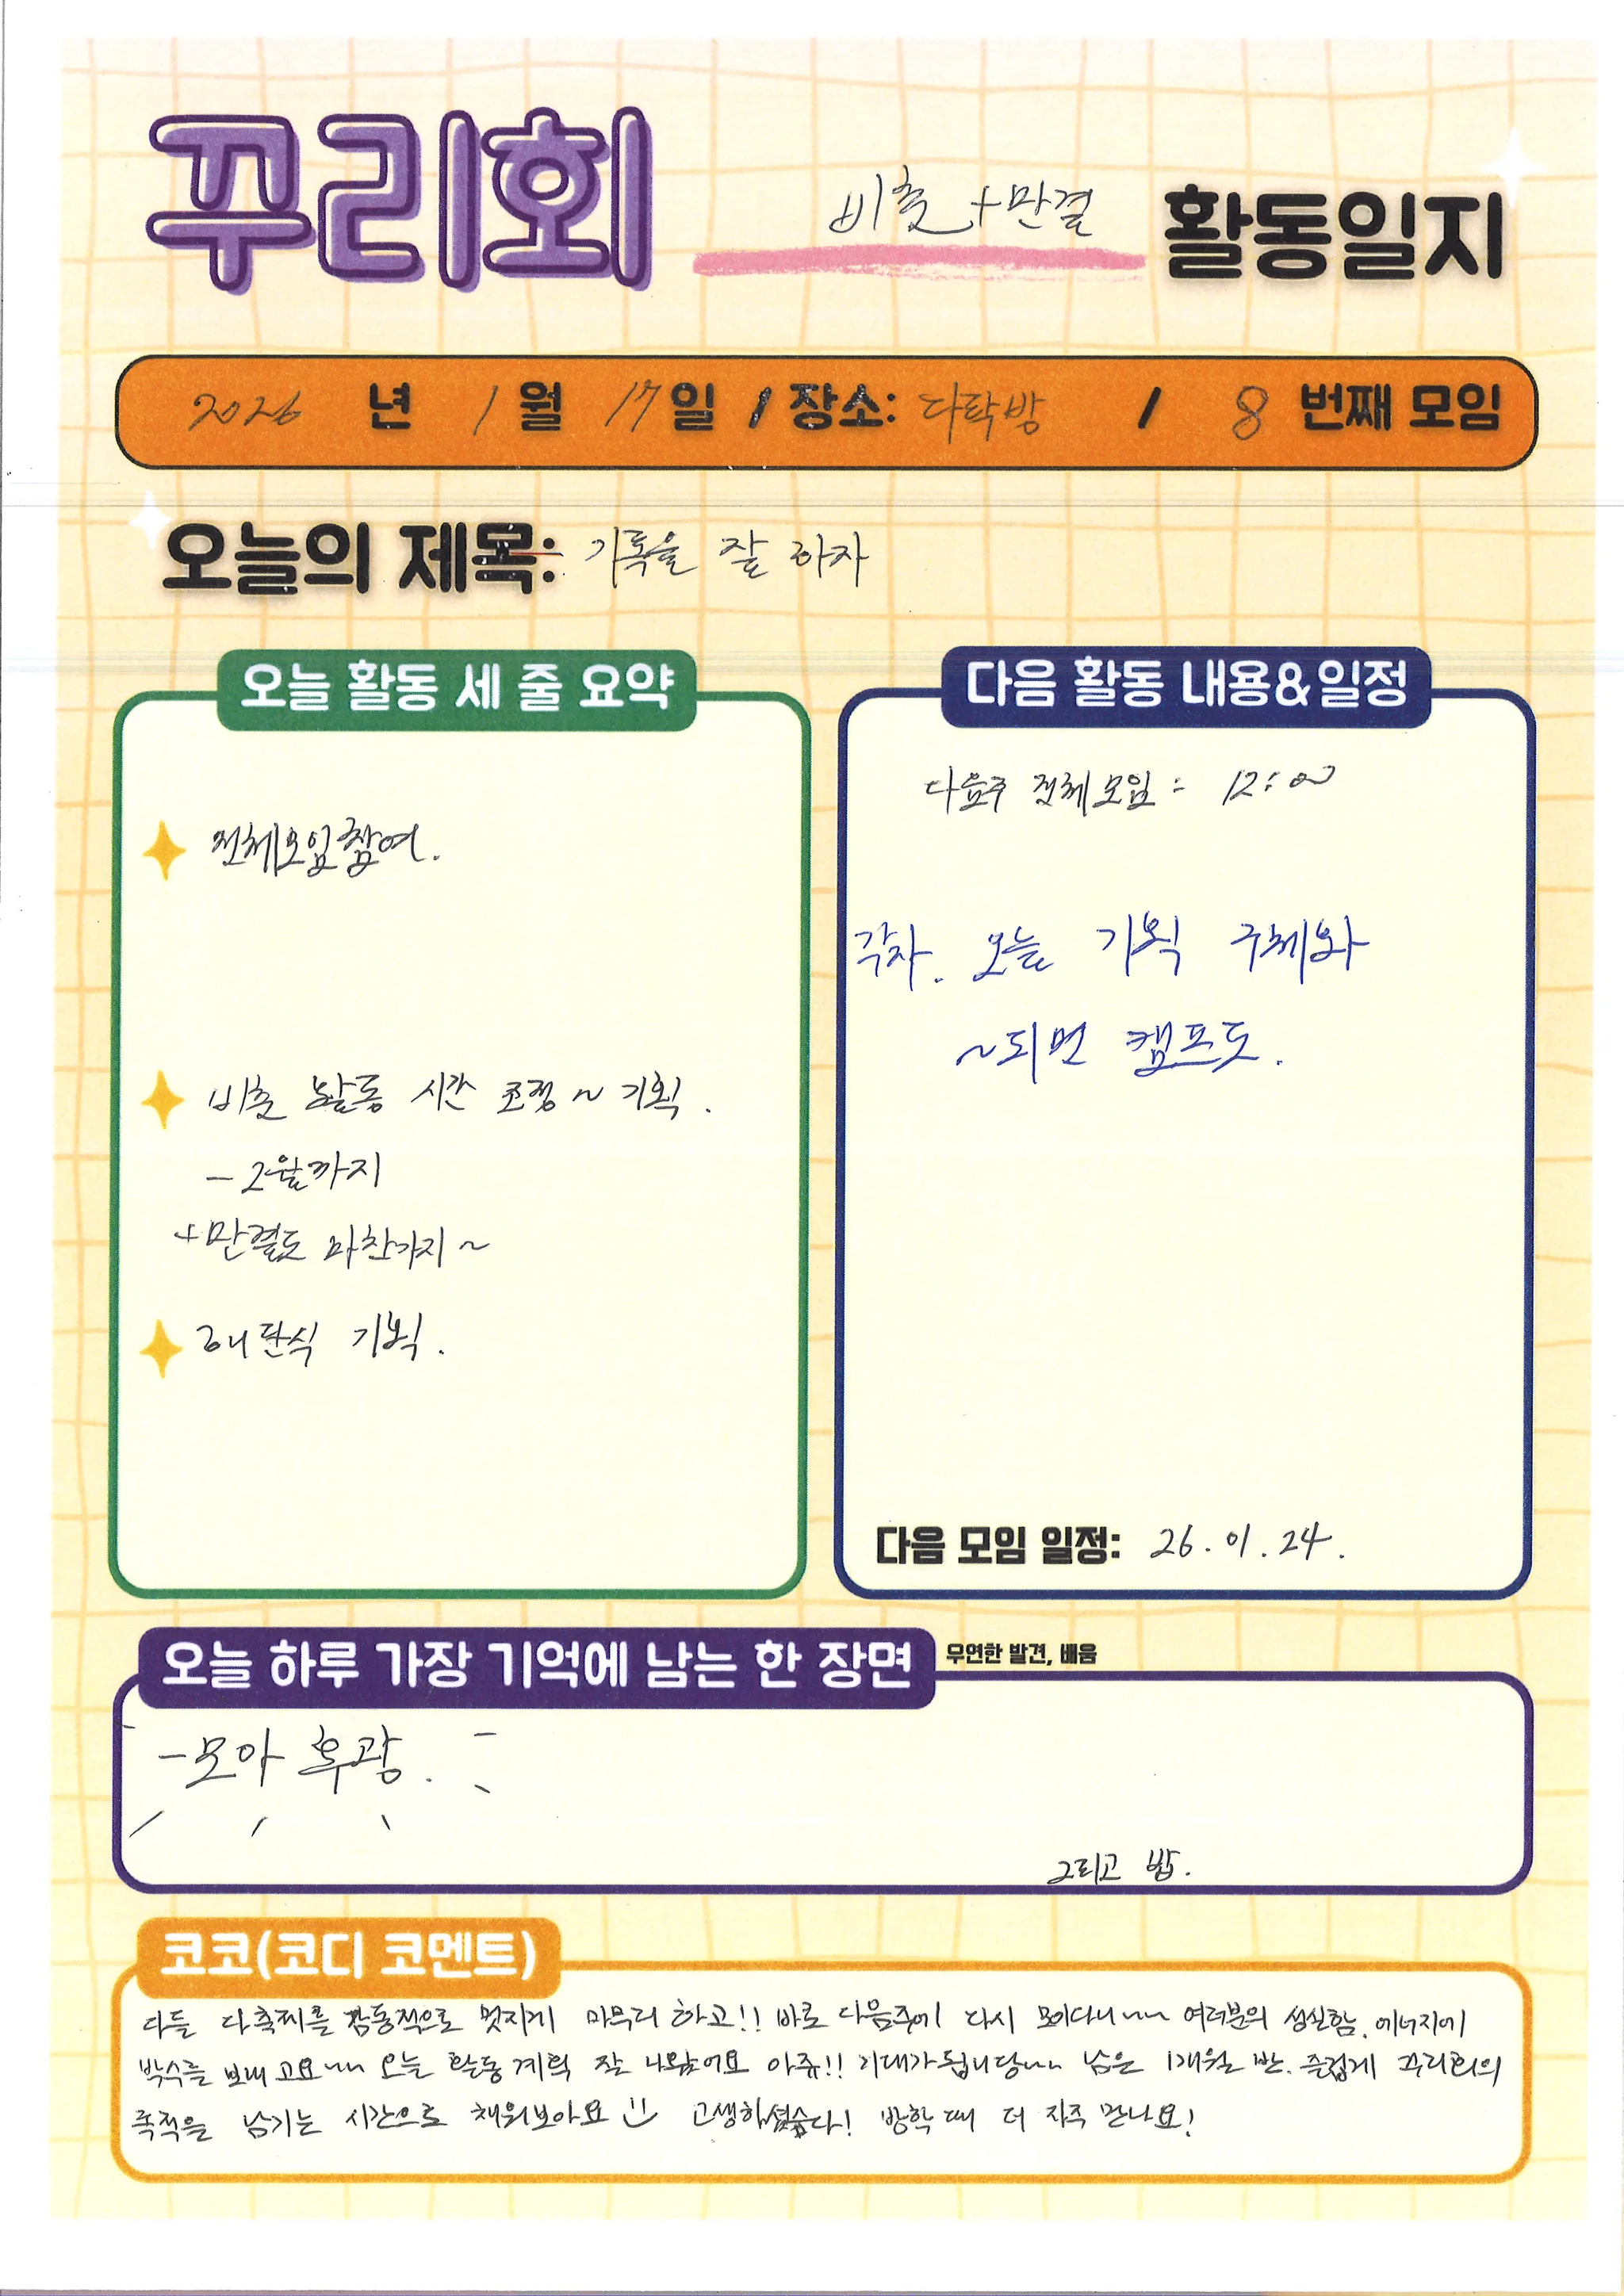 꾸리회 비춤+만결 활동일지
2026 년 1 월 17 일 / 장소: 다락방 / 8 번째 모임
오늘의 제목: 기록을 잘 하자
오늘 활동 세 줄 요약
전체모임참여.
비춤 활동 시간 조정 ~ 기획.
- 2월까지
+만결도 마찬가지 ~
해단식 기획.
다음 활동 내용&일정
다음주 전체모임 : 12:00
각자. 오늘 기획 구체화
~되면 캠프도.
다음 모임 일정: 26. 01. 24.
오늘 하루 가장 기억에 남는 한 장면 우연한 발견, 배움
-모아 후광.
그리고 밥.
코코(코디 코멘트)
다들 다축제를 감동적으로 멋지게 마무리 하고!! 바로 다음주에 다시 모이다니~~ 여러분의 성실함, 에너지에
박수를 보내고요~~ 오늘 활동 계획 잘 나왔어요 아쥬!! 기대가 됩니당~~ 남은 1개월 반. 즐겁게 꾸리회의
족적을 남기는 시간으로 채워보아요 고생하셨습다! 방학 때 더 자주 만나요!